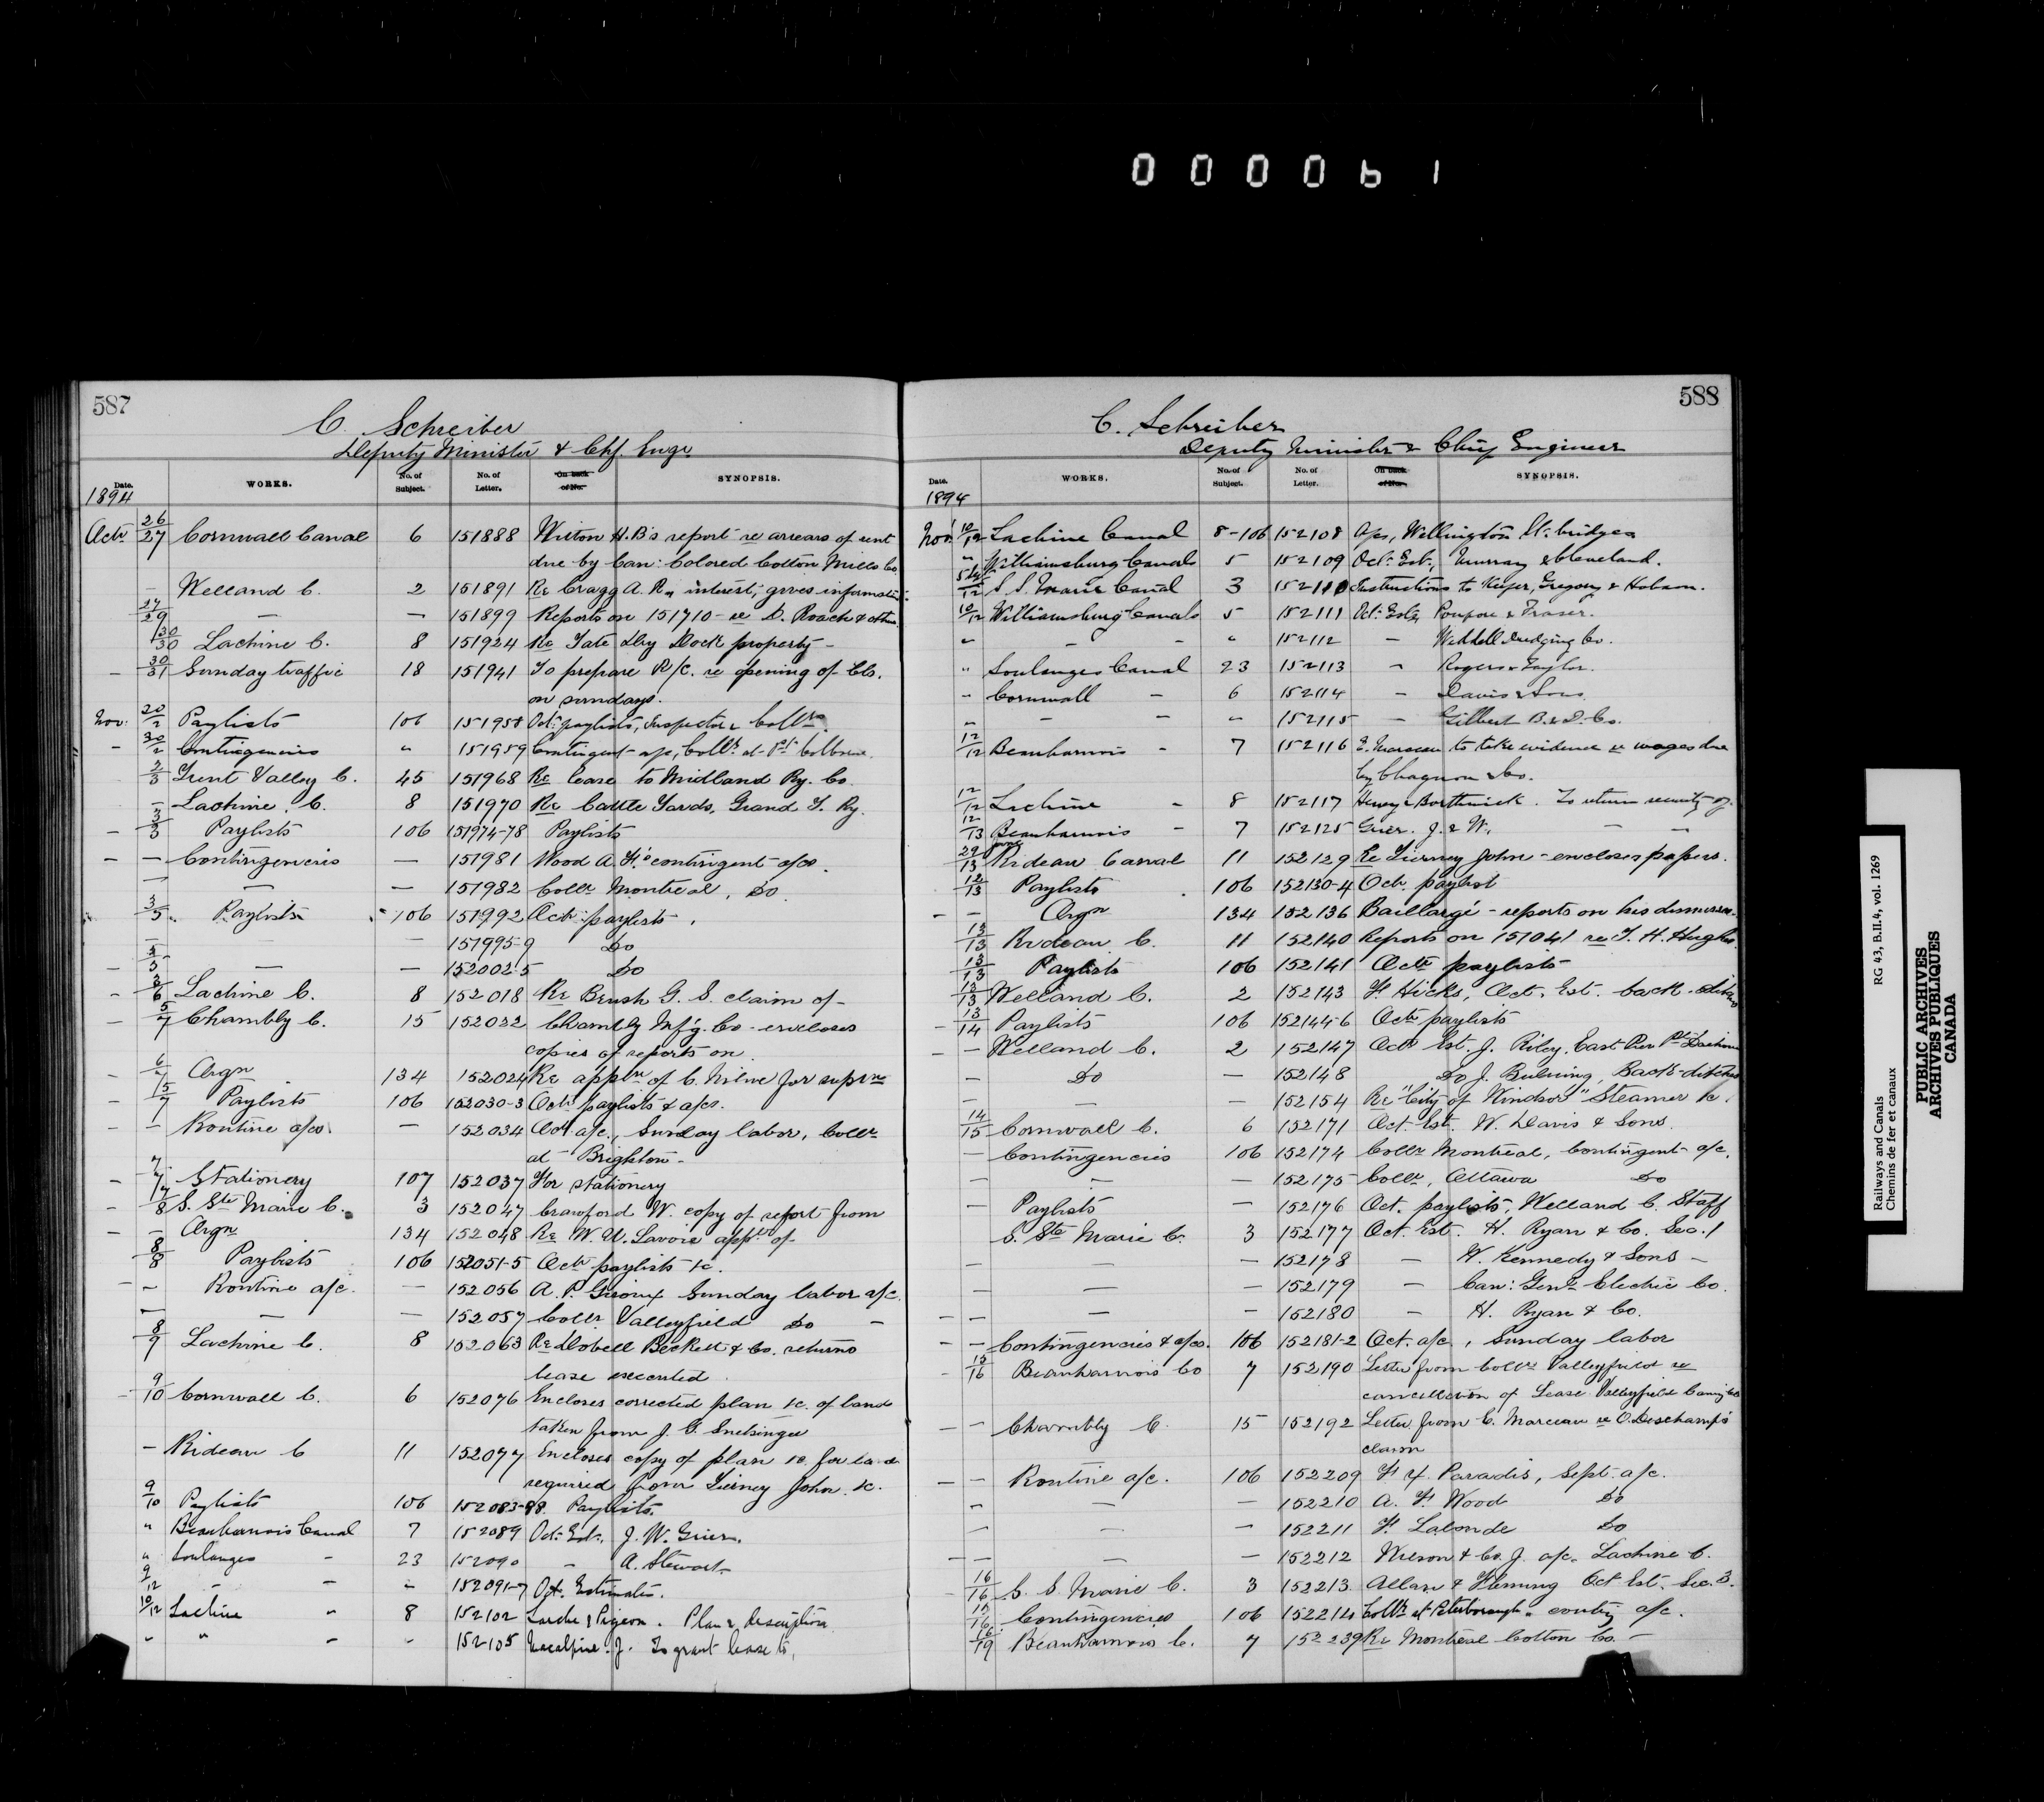 000061
587
C. Schreiber
Deputy Minister & Chf. Engr.
Date. WORKS. No. of Subject. No. of Letter. On back of No. SYNOPSIS.
1894
Octr 26/27 Cornwall Canal 6 151888 H.B's report re arrears of rent
due by Can: Colored Cotton Mills Co
— Welland C. 2 151891 Re Cragg A. R., interest, gives information
27/29 — — 151899 Reports on 151710 re D. Roach & others
30/30 Lachine C. 8 151924 Re Tate Dry Dock property
— 30/31 Sunday traffic 18 151941 To prepare R/C. re opening of Cls.
on sundays.
Nov: Paylists 106 151958 Oct: paylists, Inspector & Collr
— 30/2 Contingencies " 151959 Contingent a/c, Collr at Pt Colborne
2/3 Trent Valley C. 45 151968 Re lease to Midland Ry. Co
— Lachine C. 8 151970 Re Cattle Yards, Grand T. Ry.
— 3/3 Paylists 106 151974-78 Paylists
— — Contingencies — 151981 Wood A. F.'s contingent a/cs.
— — — 151982 Collr Montreal, Do
3/5 " Paylists " 106 151992 Octr: paylists.
— — 151995-9 Do
— 3/5 — — 152002-5 Do
— 3/6 Lachine C. 8 152018 Re Brush G. S. claim of
— 5/7 Chambly C. 15 152022 Chambly Mf'g. Co - encloses
copies of reports on
— 6/7 Orgn 134 152024 Re appln of C. Milne for suprn
— 5/7 Paylists 106 152030-3 Octr paylists & a/cs.
— — Routine a/cs. — 152034 Oct a/c., Sunday labor, Collr
at Brighton
— 7/7 Stationery 107 152037 For stationery
— 7/8 S. Ste Marie C. 3 152047 Crawford W. copy of report from
— — Orgn 134 152048 Re W. U. Lavoie appt of
8/8 Paylists 106 152051-5 Octr paylists &c.
— - Routine a/c. — 152056 A. P. Giroux Sunday labor a/c.
— — — 152057 Collr Valleyfield Do
8/9 Lachine C. 8 152063 Re Dobell Beckett & Co. returns
lease executed.
— 9/10 Cornwall C. 6 152076 Encloses corrected plan &c. of land
taken from J. G. Snetsinger
— Rideau C 11 152077 Encloses copy of plan &c. for land
required from Tierney John &c.
9/10 Paylists 106 152083-88 Paylists.
" Beauharnois Canal 7 152089 Oct: Est., J. W. Grier.
" Soulanges - 23 152090 - A. Stewart
9/12 - - " 152091-7 Oct. Estimates.
10/12 Lachine " 8 152102 Larche & Pigeon. Plan & description
" " - - 152105 Macalpine. J. To grant lease to,
588
C. Schreiber
Deputy Minister & Chief Engineer
Date. WORKS. No. of Subject. No. of Letter. On back of No. SYNOPSIS.
1894
Nov. 10/12 Lachine Canal 8-106 152108 a/cs, Wellington St. bridges
" Williamsburg Canals 5 152109 Oct: Est., Murray & Cleveland.
S. S. Marie Canal 3 152110 Instructions to Keefer, Gregory & Hobson.
10/12 Williamsburg Canals 5 152111 Oct: Ests, Poupore & Fraser.
" - - " 152112 - Weddell dredging Co.
" Soulanges Canal 23 152113 - Rogers & Taylor.
" Cornwall - 6 152114 - Davis & Sons
" - - " 152115 - Gilbert B. & D. Co.
12/12 Beauharnois - 7 152116 E. Marceau to take evidence re wages due
by Chagnon & Co.
12/12 Lachine - 8 152117 Henry & Borthwick. To return security of
12/13 Beauharnois - 7 152125 Grier. J. & W. — —
29/13 Rideau Canal 11 152129 Re Tierney John - encloses papers.
12/13 Paylists 106 152130-4 Octr paylist
— — Orgn 134 152136 Baillargé - reports on his dismissal
13/13 Rideau C. 11 152140 Reports on 151041 re T. H. Hughes.
13/13 Paylists 106 152141 Octr paylists
13/13 Welland C. 2 152143 F. Hicks, Oct. Est. back-ditches
— 13/14 Paylists 106 152144-6 Octr paylists
— — Welland C. 2 152147 Octr Est. J. Riley, East Pier Pt Dalhousie
— Do — 152148 Do J. Bulming, Back-ditches
— — — 152154 Re "City of Windsor" Steamer &c.
14/15 Cornwall C. 6 152171 Oct. Est. W. Davis & Sons.
— Contingencies 106 152174 Collr Montreal, Contingent a/c.
— — — 152175 Collr, Ottawa Do
— Paylists — 152176 Oct. paylists, Welland C. Staff
S. Ste Marie C. 3 152177 Oct. Est. H. Ryan & Co. Sec. 1
— — — 152178 — W. Kennedy & Sons —
— — — 152179 — Can: Genl Electric Co.
— — — — 152180 — H. Ryan & Co.
— — Contingencies & a/cs. 106 152181-2 Oct. a/c., Sunday labor
— 15/16 Beauharnois Co 7 152190 Letter from Collr Valleyfield re
cancellation of Lease Valleyfield
— Chambly C. 15 152192 Letter from E. Marceau re O. Deschamp's
claim
— — Routine a/c. 106 152209 F. X. Paradis, Sept. a/c.
— — — 152210 A. F. Wood Do
— — — 152211 F. Lalonde Do
— — — — 152212 Wilson & Co. J. a/c. Lachine C.
16/16 S. S. Marie C. 3 152213 Allan & Fleming Oct Est. Sec. 3.
15/16 Contingencies 106 152214 Collr at Peterborough conting a/c.
16/19 Beauharnois C. 7 152239 Re Montreal Cotton Co. —
Railways and Canals RG 43, B.II.4, vol. 1269
Chemins de fer et canaux
PUBLIC ARCHIVES
ARCHIVES PUBLIQUES
CANADA